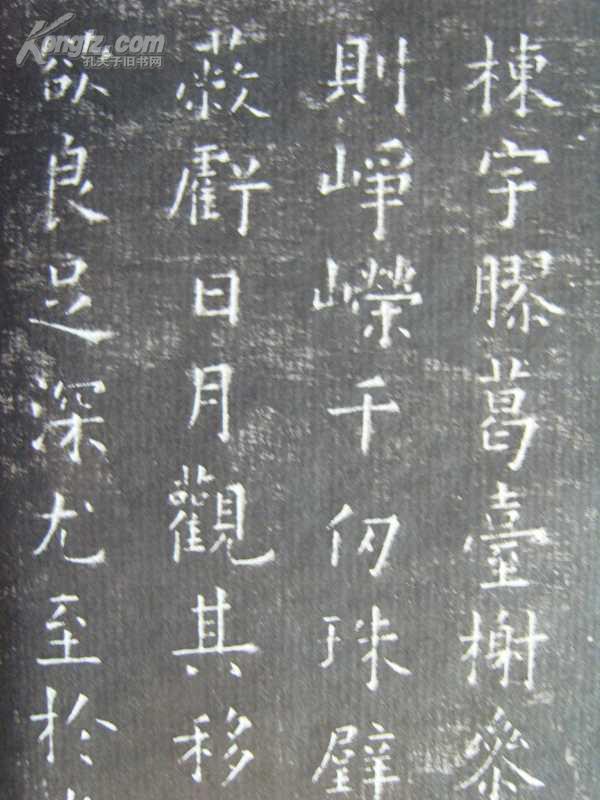 棟宇膠葛臺榭參
則崢嶸千仞珠壁
蔽虧日月觀其移
欲良足深尤至於
Kongfz.com
孔夫子旧书网